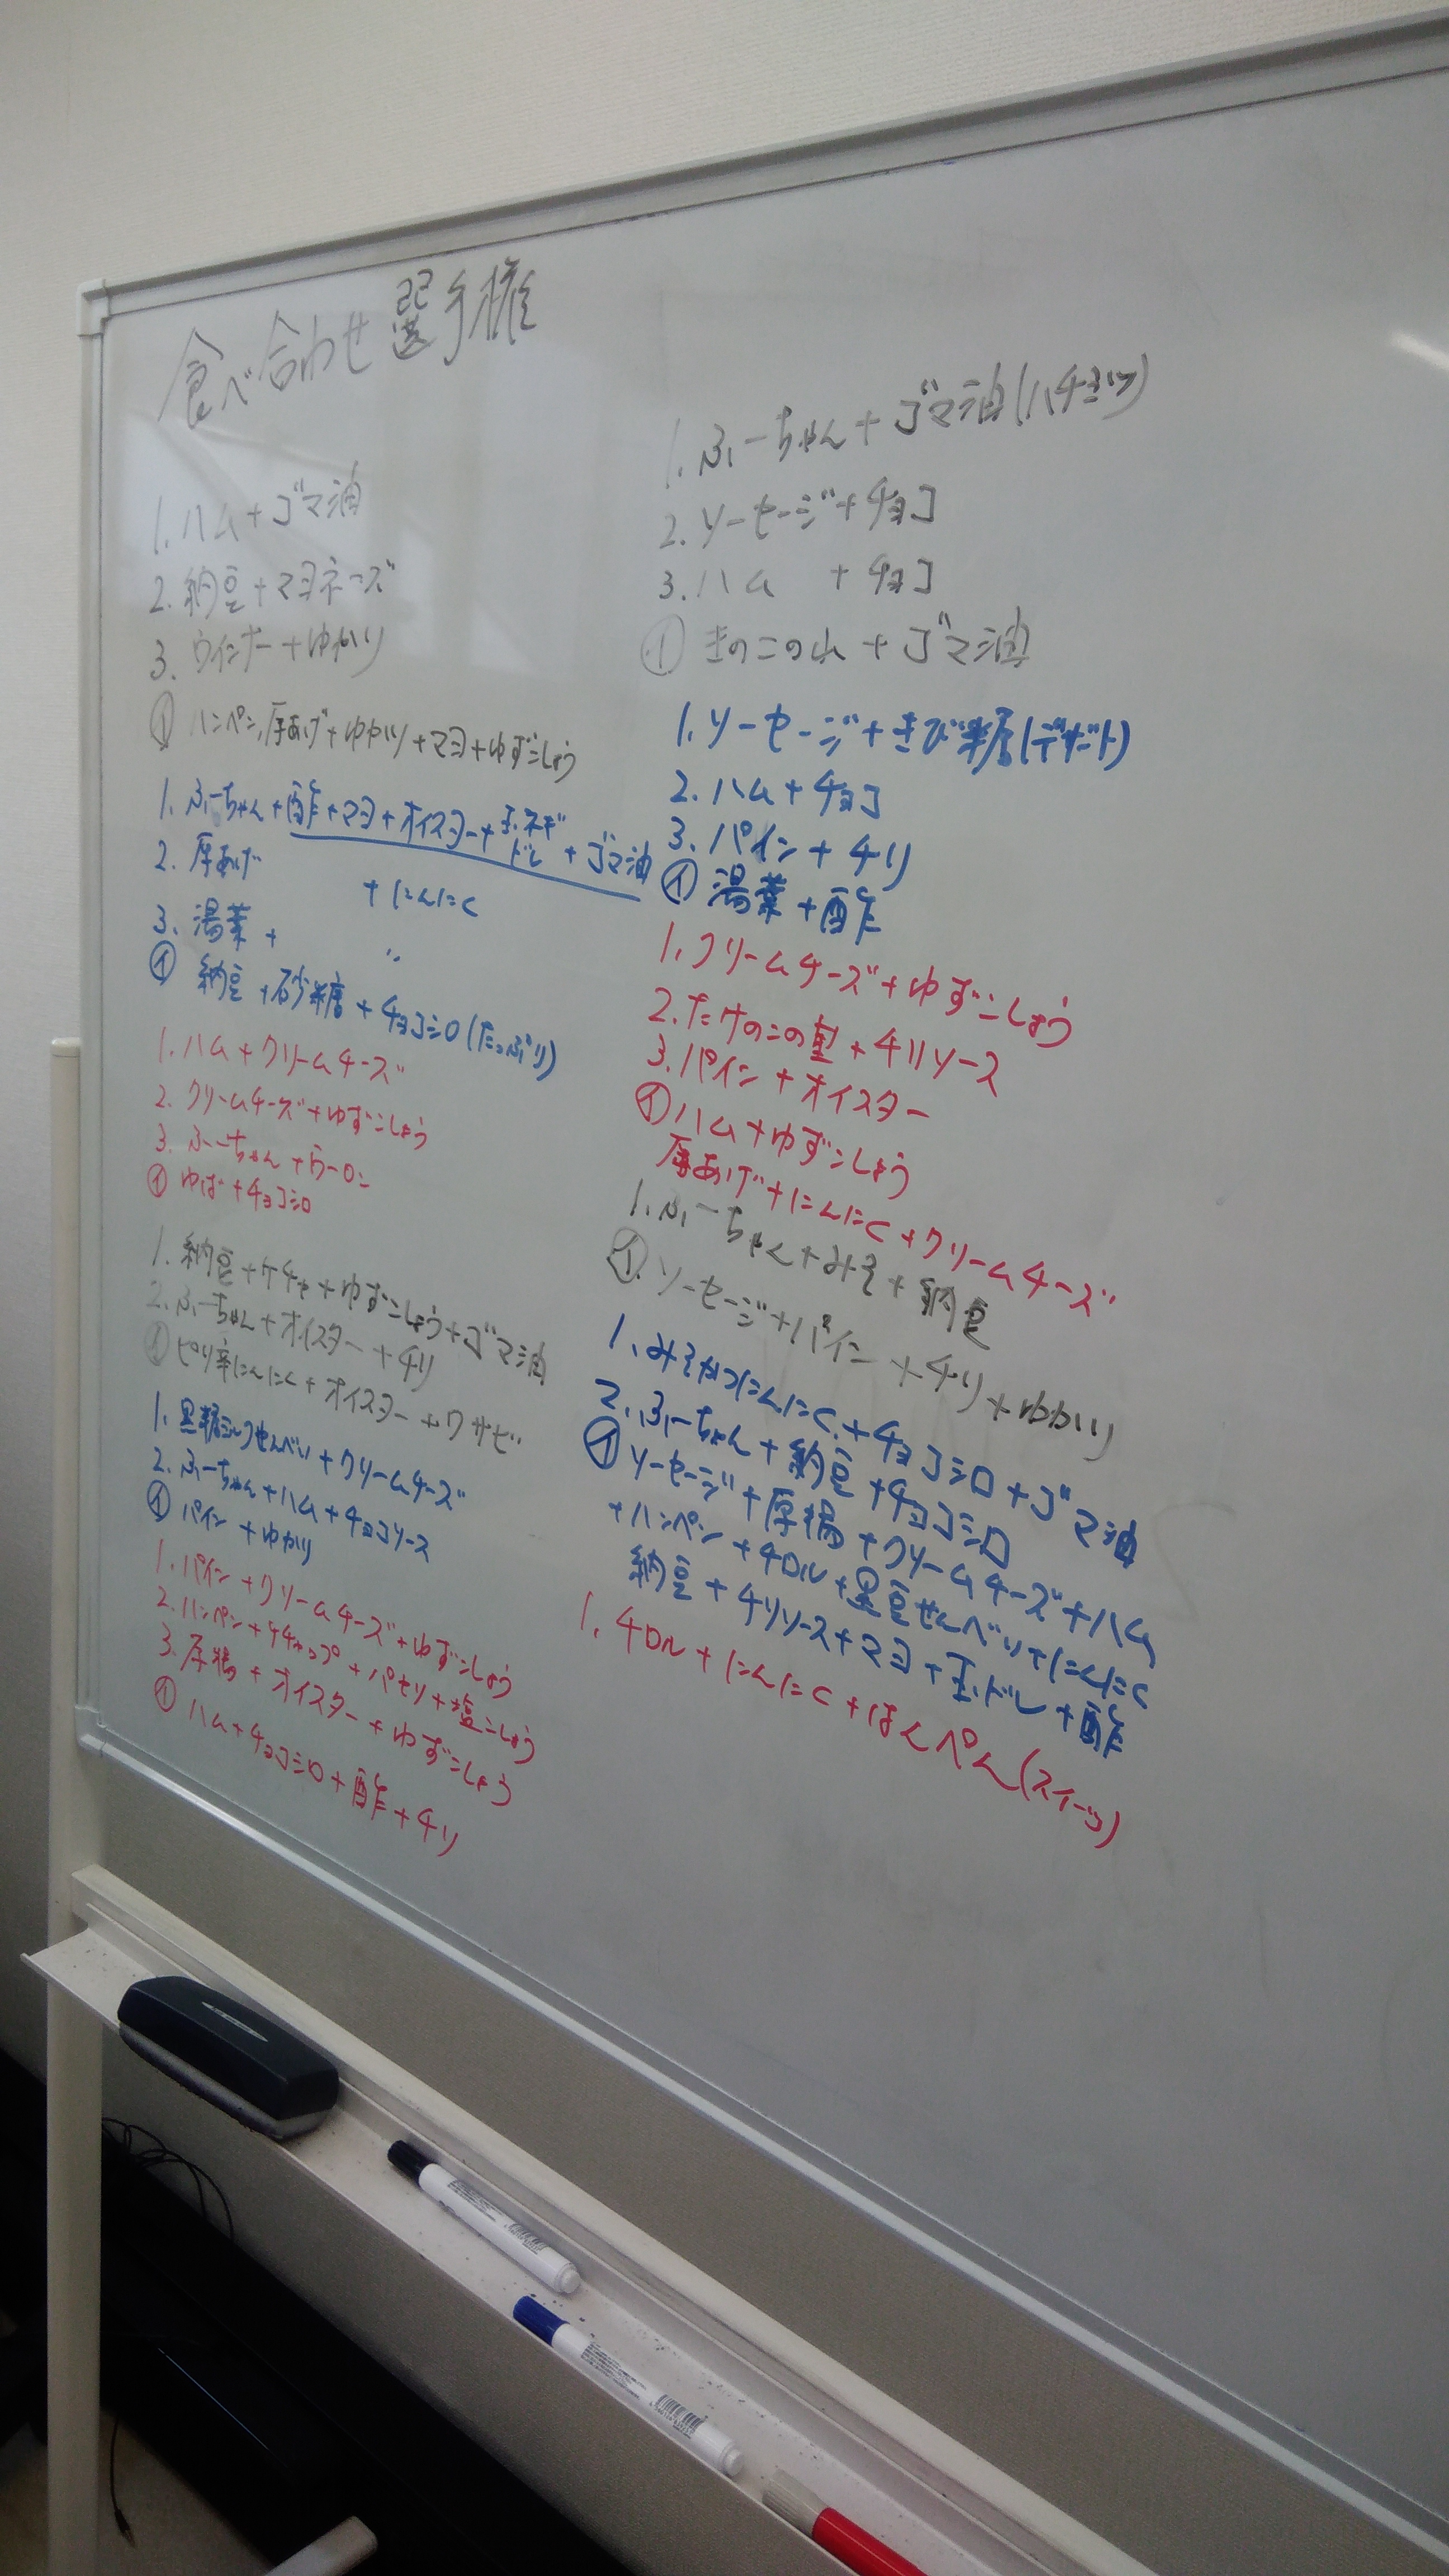 食べ合わせ選手権
1. ハム+ゴマ油
2. 納豆+マヨネーズ
3. ウインナー+ゆかり
① ハンペン,厚あげ+ゆかり+マヨ+ゆずこしょう
1. ふーちゃん+酢+マヨ+オイスター+玉ネギドレ+ゴマ油
2. 厚あげ +にんにく
3. 湯葉+ 〃
① 納豆+砂糖+チョコシロ(たっぷり)
1. ハム+クリームチーズ
2. クリームチーズ+ゆずこしょう
3. ふーちゃん+ウーロン
① ゆば+チョコシロ
1. 納豆+ケチャ+ゆずこしょう+ゴマ油
2. ふーちゃん+オイスター+チリ
① ピリ辛にんにく+オイスター+ワサビ
1. 黒糖ミルクせんべい+クリームチーズ
2. ふーちゃん+ハム+チョコソース
① パイン+ゆかり
1. パイン+クリームチーズ+ゆずこしょう
2. ハンペン+ケチャップ+パセリ+塩こしょう
3. 厚揚+オイスター+ゆずこしょう
① ハム+チョコシロ+酢+チリ
1. ふーちゃん+ゴマ油(ハチミツ)
2. ソーセージ+チョコ
3. ハム +チョコ
① きのこの山+ゴマ油
1. ソーセージ+きび糖(デザート)
2. ハム+チョコ
3. パイン+チリ
① 湯葉+酢
1. クリームチーズ+ゆずこしょう
2. たけのこの里+チリソース
3. パイン+オイスター
① ハム+ゆずこしょう
厚あげ+にんにく+クリームチーズ
1. ふーちゃん+みそ+納豆
① ソーセージ+パイン+チリ+ゆかり
1. みそかつにんにく+チョコシロ+ゴマ油
2. ふーちゃん+納豆+チョコシロ
① ソーセージ+厚揚+クリームチーズ+ハム
+ハンペン+チロル+黒豆せんべい+にんにく
納豆+チリソース+マヨ+玉ドレ+酢
1. チロル+にんにく+はんぺん(スイーツ)